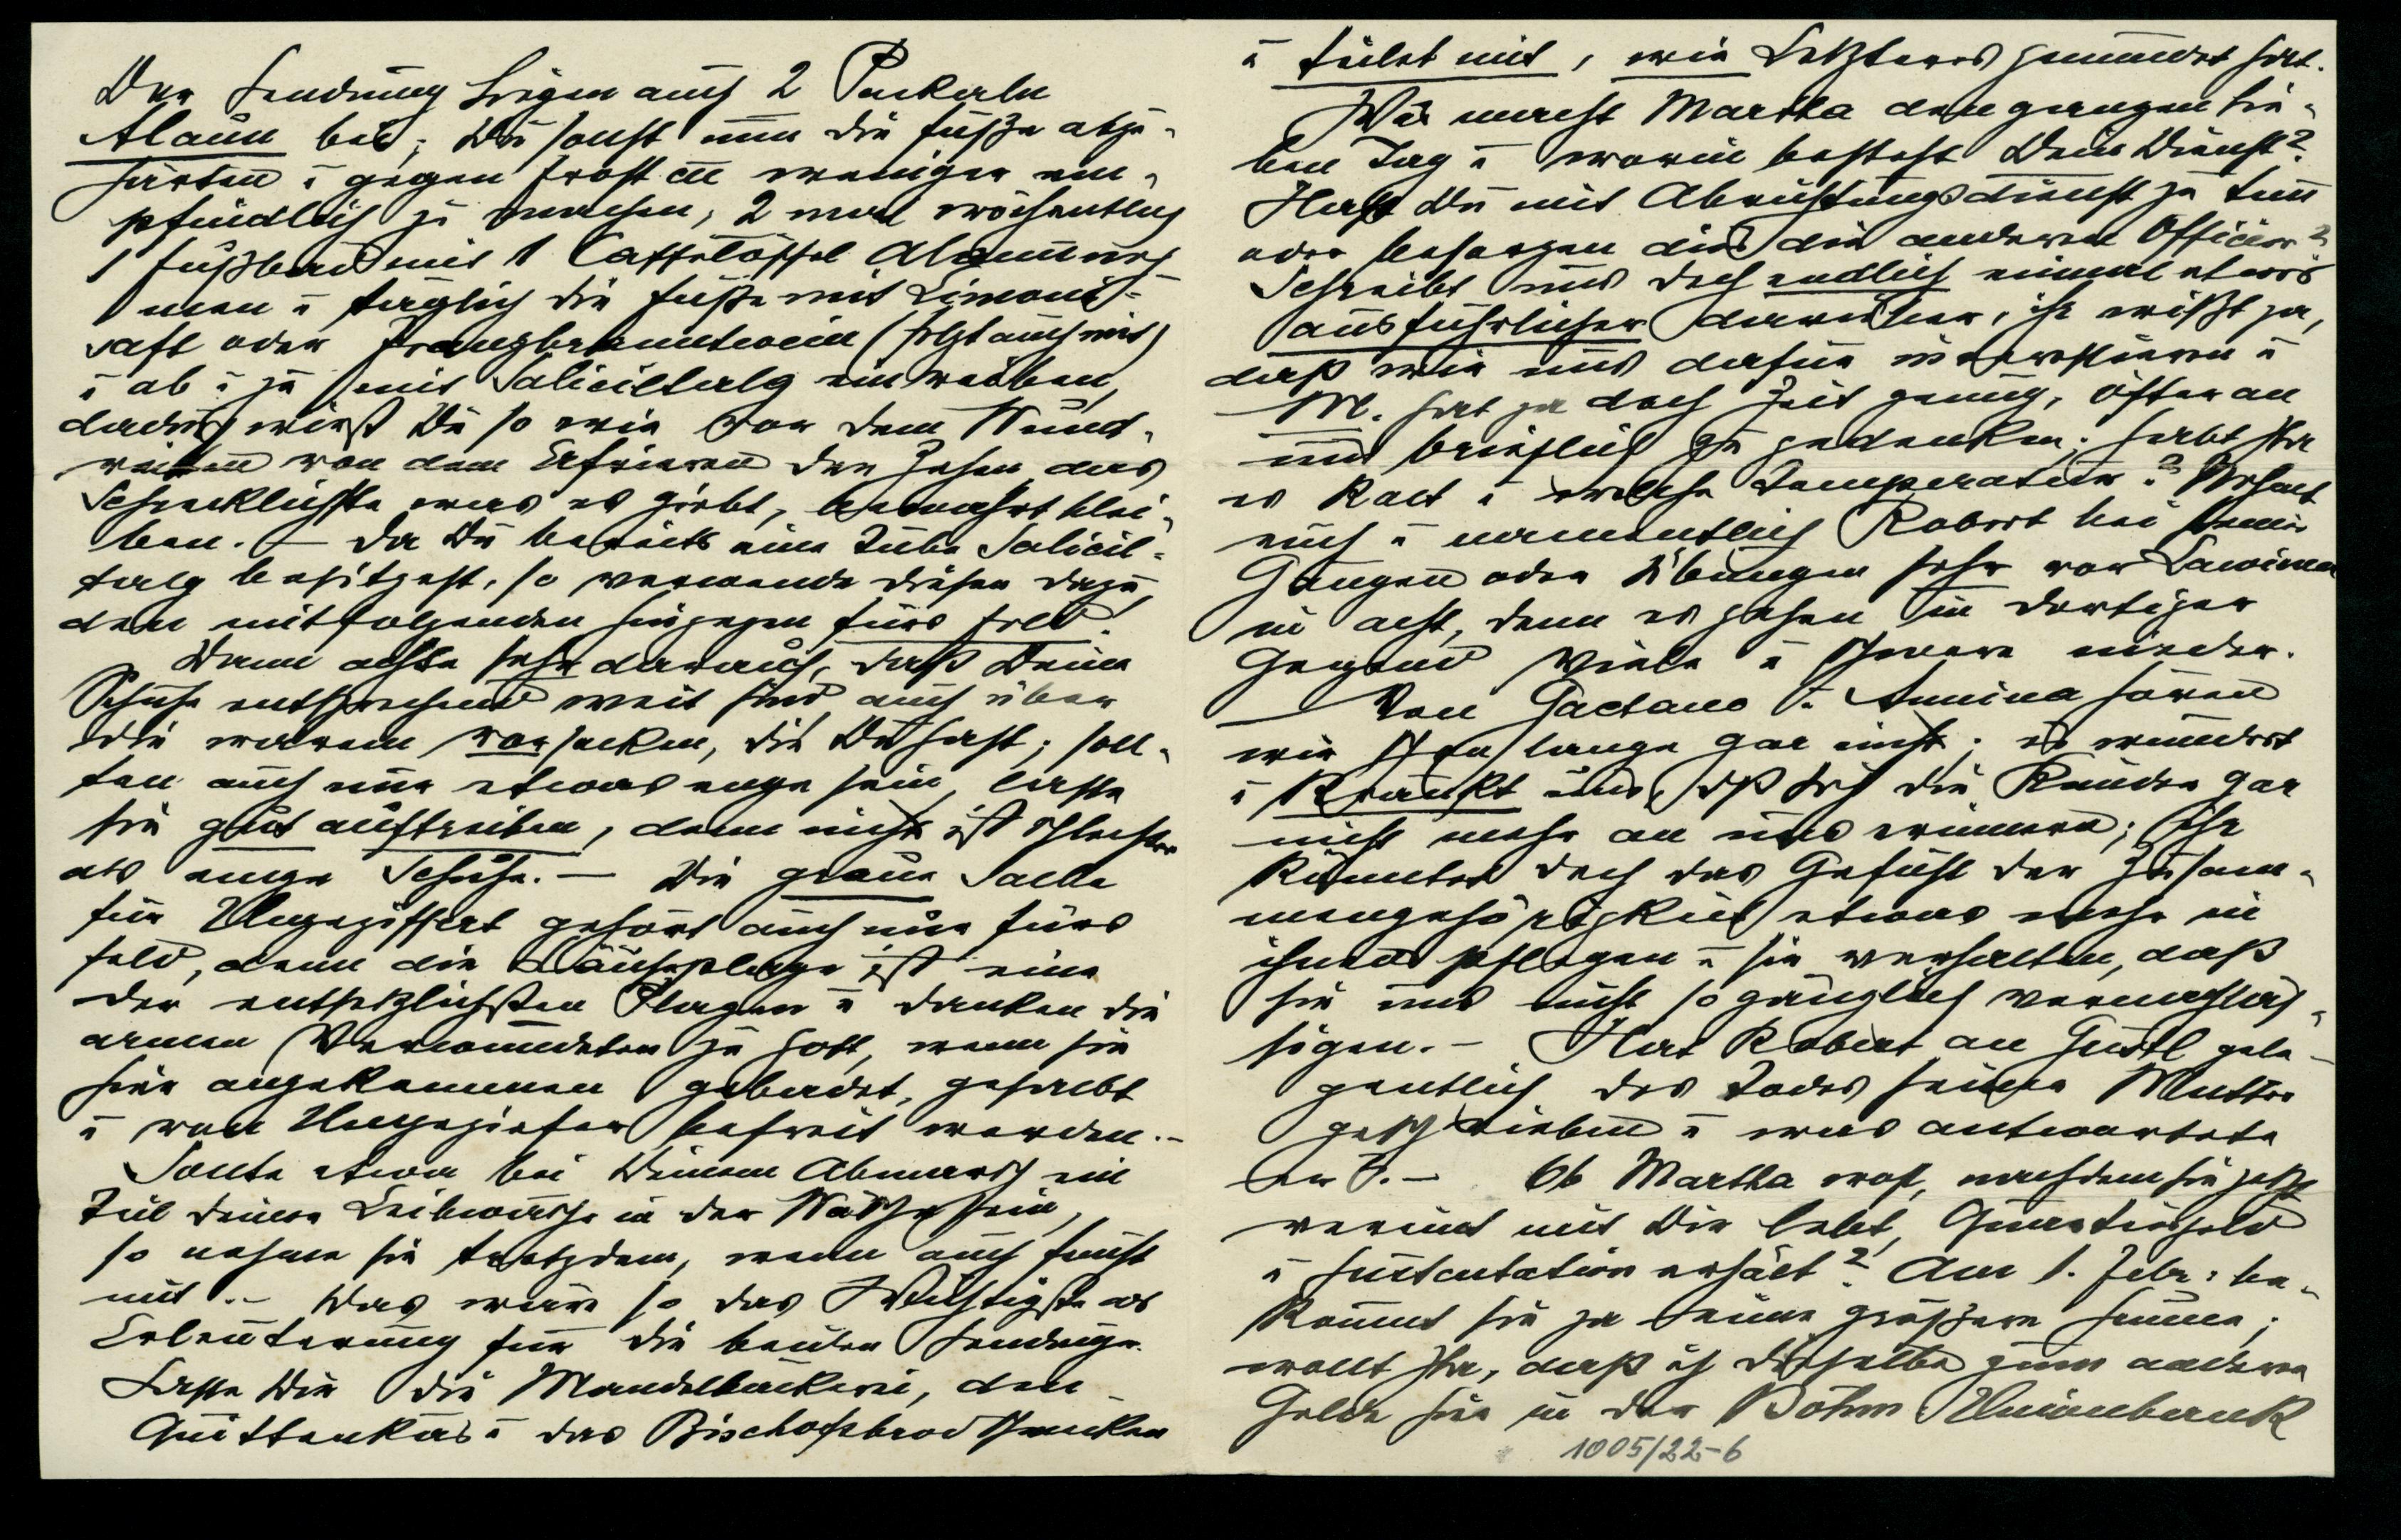 Der Sendung liegen auch 2 Packerln
Alaun bei; Du sollst nun die Füße abzu-
härten u gegen Frost weniger em-
pfindlich zu machen, 2 mal wöchentlich
1 Fußbad mit 1 Caffelöffel Alaun neh
men u täglich die Füße mit Limoni-
saft oder Franzbranntwein (folgt auch mit)
u ab u zu mit Saliciltalg einreiben,
dadurch wirst Du so wie vor dem Wund-
reiben von dem Erfrieren der Zehen das
Schrecklichste was es giebt, bewahrt blei-
ben. – Da Du bereits eine Tube Salicil-
talg besitzest, so verwende diesen dazu
den mitfolgenden hingegen fürs Feld!
Dann achte sehr darauf, daß Deine
Schuhe entsprechend weit sind auch über
die warmen socken, die Du hast; soll-
ten auch nur etwas enge sein, lasse
sie gut auftreiben, denn nichts ist schlechter
als enge Schuhe. – Die graue Salbe
für Ungeziffert gehört auch nur fürs
Feld, denn die Läuseplage ist eine
der entsetzlichsten Plagen u danken die
armen Verwundeten zu Gott, wenn sie
hier angekommen gebadet, gesalbt
u von Ungeziefer befreit werden. –
Sollte etwa bei Deinem Abmarsch ein
Teil deiner Leibwäsche in der Wäsche sein,
so nehme sie trotzdem, wenn auch feucht
mit. – Das wäre so das Wichtigste als
Erleuterung für die beiden Sendungen.
Lasse Dir die Mandelbäckerei, den
Quittenkäs u das Bischofsbrod schmecken
u teilet mit, wie Letzteres gemundet hat.
Was macht Martha den ganzen lie-
ben Tag u worin besteht Dein Dienst?
Hast Du mit Abrichtungsdienst zu tun
oder besorgen dies die anderen Officier?
Schreibt uns doch endlich einmal etwas
ausführlicher darüber, ihr wißt ja,
daß wir uns dafür interessieren u
M. hat ja doch Zeit genug, öfter an
uns brieflich zu gedenken. Habt Ihr
es kalt u welche Temperatur? Nehmt
euch u namentlich Robert bei seinen
Gängen oder Übungen sehr vor Lawinen
in acht, denn es gehen in dortiger
Gegend viele u schwere nieder.
– Von Gaetano u. Annina hören
wir schon lange gar nichts; es wundert
u kränkt uns, dß sich die Kinder gar
nicht mehr an uns erinnern; Ihr
könntet doch das Gefühl der Zusam-
mengehörigkeit etwas mehr in
ihnen pflegen u sie verhalten, daß
sie uns nicht so gänzlich vernachläs-
sigen. – Hat Robert an Gustl gele-
gentlich des Todes seiner Mutter
geschrieben u was antwortete
er? – Ob Martha wohl, nachdem sie jetzt
vereint mit Dir lebt, Quartiergeld
u Sustentation erhält? Am 1. Febr. be-
kommt sie ja eine größere Summe;
wollt Ihr, daß ich dieselbe zum anderen
Gelde hier in der Böhm. Unionbank
1005/22-6